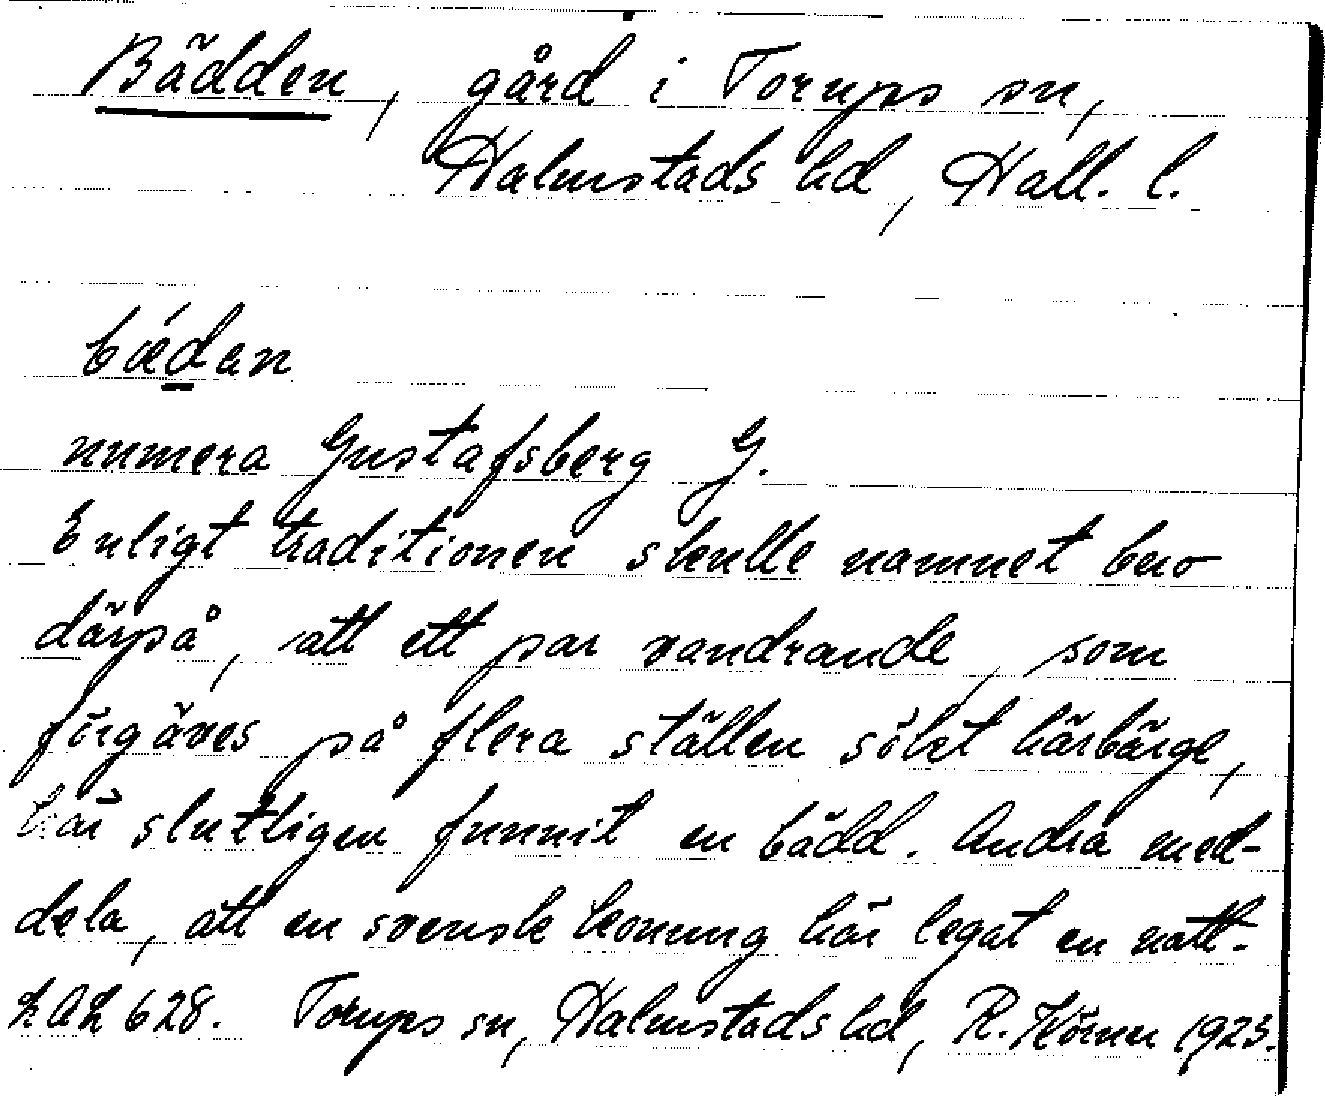 Bädden, gård i Torups sn,
Halmstads hd, Hall. l.
bǽdan
numera Gustafsberg G.
Enligt traditionen skulle namnet bero
därpå, att ett par vandrande, som
förgäves på flera ställen sökt härbärge,
här slutligen funnit en bädd. Andra med-
dela, att en svensk konung här legat en natt.
628. Torups sn, Halmstads hd, R. Hörner 1923.